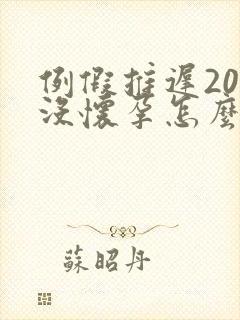 例假推遲20
沒懷孕怎麼
蘇昭丹